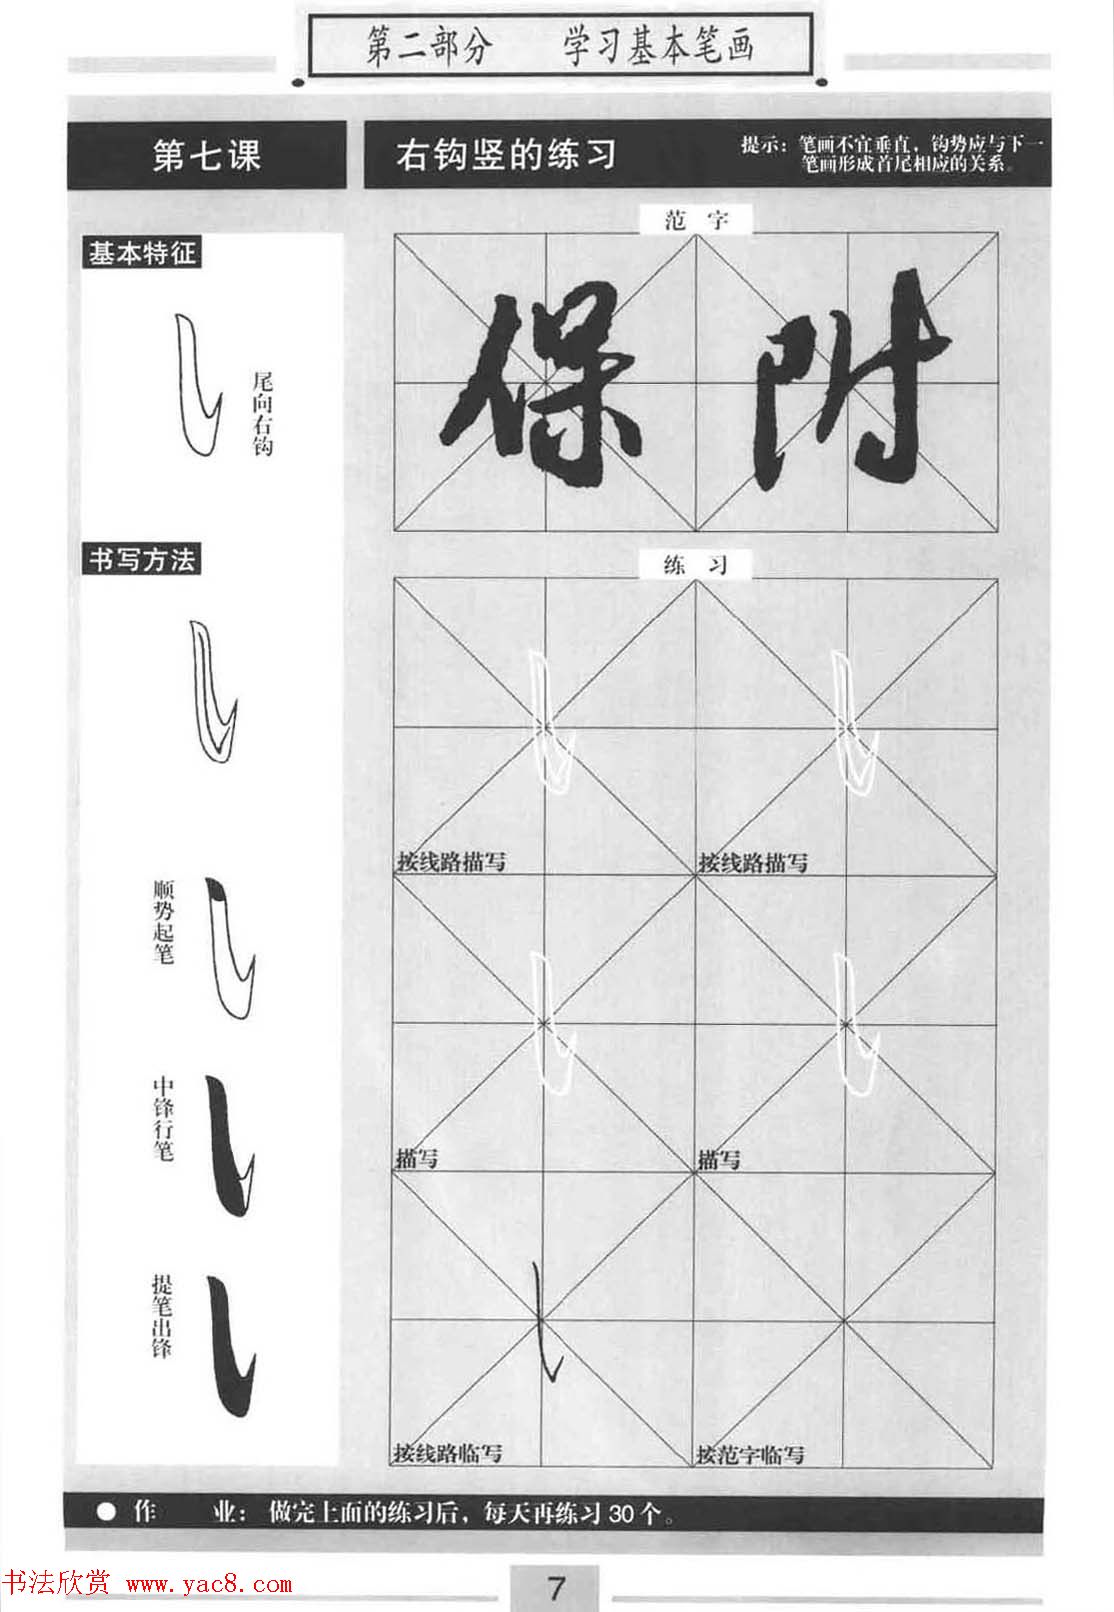 第二部分 学习基本笔画
第七课
右钩竖的练习
提示：笔画不宜垂直，钩势应与下一
笔画形成首尾相应的关系。
基本特征
尾向右钩
书写方法
顺势起笔
中锋行笔
提笔出锋
范 字
保 附
练 习
按线路描写 按线路描写
描写 描写
按线路临写 按范字临写
● 作 业：做完上面的练习后，每天再练习30个。
书法欣赏 www.yac8.com
7